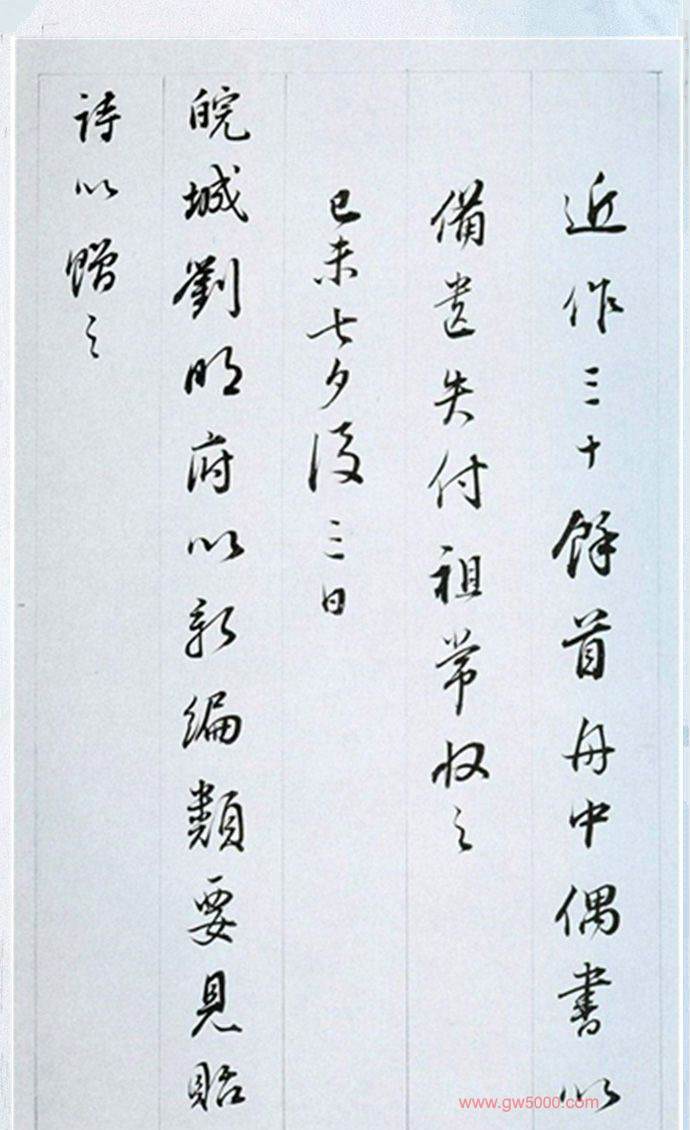 近作三十餘首舟中偶書以
備遺失付祖常收之
已未七夕後三日
皖城劉明府以新編類要見貽
詩以贈之
www.gw5000.com